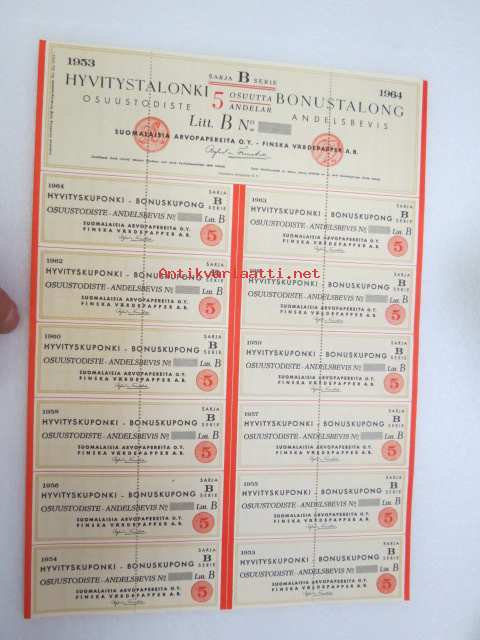 1953
SARJA B SERIE
1964
HYVITYSTALONKI 5 OSUUTTA ANDELAR BONUSTALONG
OSUUSTODISTE
ANDELSBEVIS
Litt. B No
SUOMALAISIA ARVOPAPEREITA O.Y. - FINSKA VÄRDEPAPPER A.B.
1964
SARJA
B
SERIE
HYVITYSKUPONKI - BONUSKUPONG
OSUUSTODISTE - ANDELSBEVIS No Litt. B
SUOMALAISIA ARVOPAPEREITA O.Y.
FINSKA VÄRDEPAPPER A.B.
5
1963
SARJA
B
SERIE
HYVITYSKUPONKI - BONUSKUPONG
OSUUSTODISTE - ANDELSBEVIS No Litt. B
SUOMALAISIA ARVOPAPEREITA O.Y.
FINSKA VÄRDEPAPPER A.B.
5
Antikvariaatti.net
1962
SARJA
B
SERIE
HYVITYSKUPONKI - BONUSKUPONG
OSUUSTODISTE - ANDELSBEVIS No Litt. B
SUOMALAISIA ARVOPAPEREITA O.Y.
FINSKA VÄRDEPAPPER A.B.
5
B
SERIE
HYVITYSKUPONKI - BONUSKUPONG
OSUUSTODISTE - ANDELSBEVIS No Litt. B
SUOMALAISIA ARVOPAPEREITA O.Y.
FINSKA VÄRDEPAPPER A.B.
5
1960
SARJA
B
SERIE
HYVITYSKUPONKI - BONUSKUPONG
OSUUSTODISTE - ANDELSBEVIS No Litt. B
SUOMALAISIA ARVOPAPEREITA O.Y.
FINSKA VÄRDEPAPPER A.B.
5
1959
SARJA
B
SERIE
HYVITYSKUPONKI - BONUSKUPONG
OSUUSTODISTE - ANDELSBEVIS No Litt. B
SUOMALAISIA ARVOPAPEREITA O.Y.
FINSKA VÄRDEPAPPER A.B.
5
1958
SARJA
B
SERIE
HYVITYSKUPONKI - BONUSKUPONG
OSUUSTODISTE - ANDELSBEVIS No Litt. B
SUOMALAISIA ARVOPAPEREITA O.Y.
FINSKA VÄRDEPAPPER A.B.
5
1957
SARJA
B
SERIE
HYVITYSKUPONKI - BONUSKUPONG
OSUUSTODISTE - ANDELSBEVIS No Litt. B
SUOMALAISIA ARVOPAPEREITA O.Y.
FINSKA VÄRDEPAPPER A.B.
5
1956
SARJA
B
SERIE
HYVITYSKUPONKI - BONUSKUPONG
OSUUSTODISTE - ANDELSBEVIS No Litt. B
SUOMALAISIA ARVOPAPEREITA O.Y.
FINSKA VÄRDEPAPPER A.B.
5
1955
SARJA
B
SERIE
HYVITYSKUPONKI - BONUSKUPONG
OSUUSTODISTE - ANDELSBEVIS No Litt. B
SUOMALAISIA ARVOPAPEREITA O.Y.
FINSKA VÄRDEPAPPER A.B.
5
1954
SARJA
B
SERIE
HYVITYSKUPONKI - BONUSKUPONG
OSUUSTODISTE - ANDELSBEVIS No Litt. B
SUOMALAISIA ARVOPAPEREITA O.Y.
FINSKA VÄRDEPAPPER A.B.
5
1953
SARJA
B
SERIE
HYVITYSKUPONKI - BONUSKUPONG
OSUUSTODISTE - ANDELSBEVIS No Litt. B
SUOMALAISIA ARVOPAPEREITA O.Y.
FINSKA VÄRDEPAPPER A.B.
5